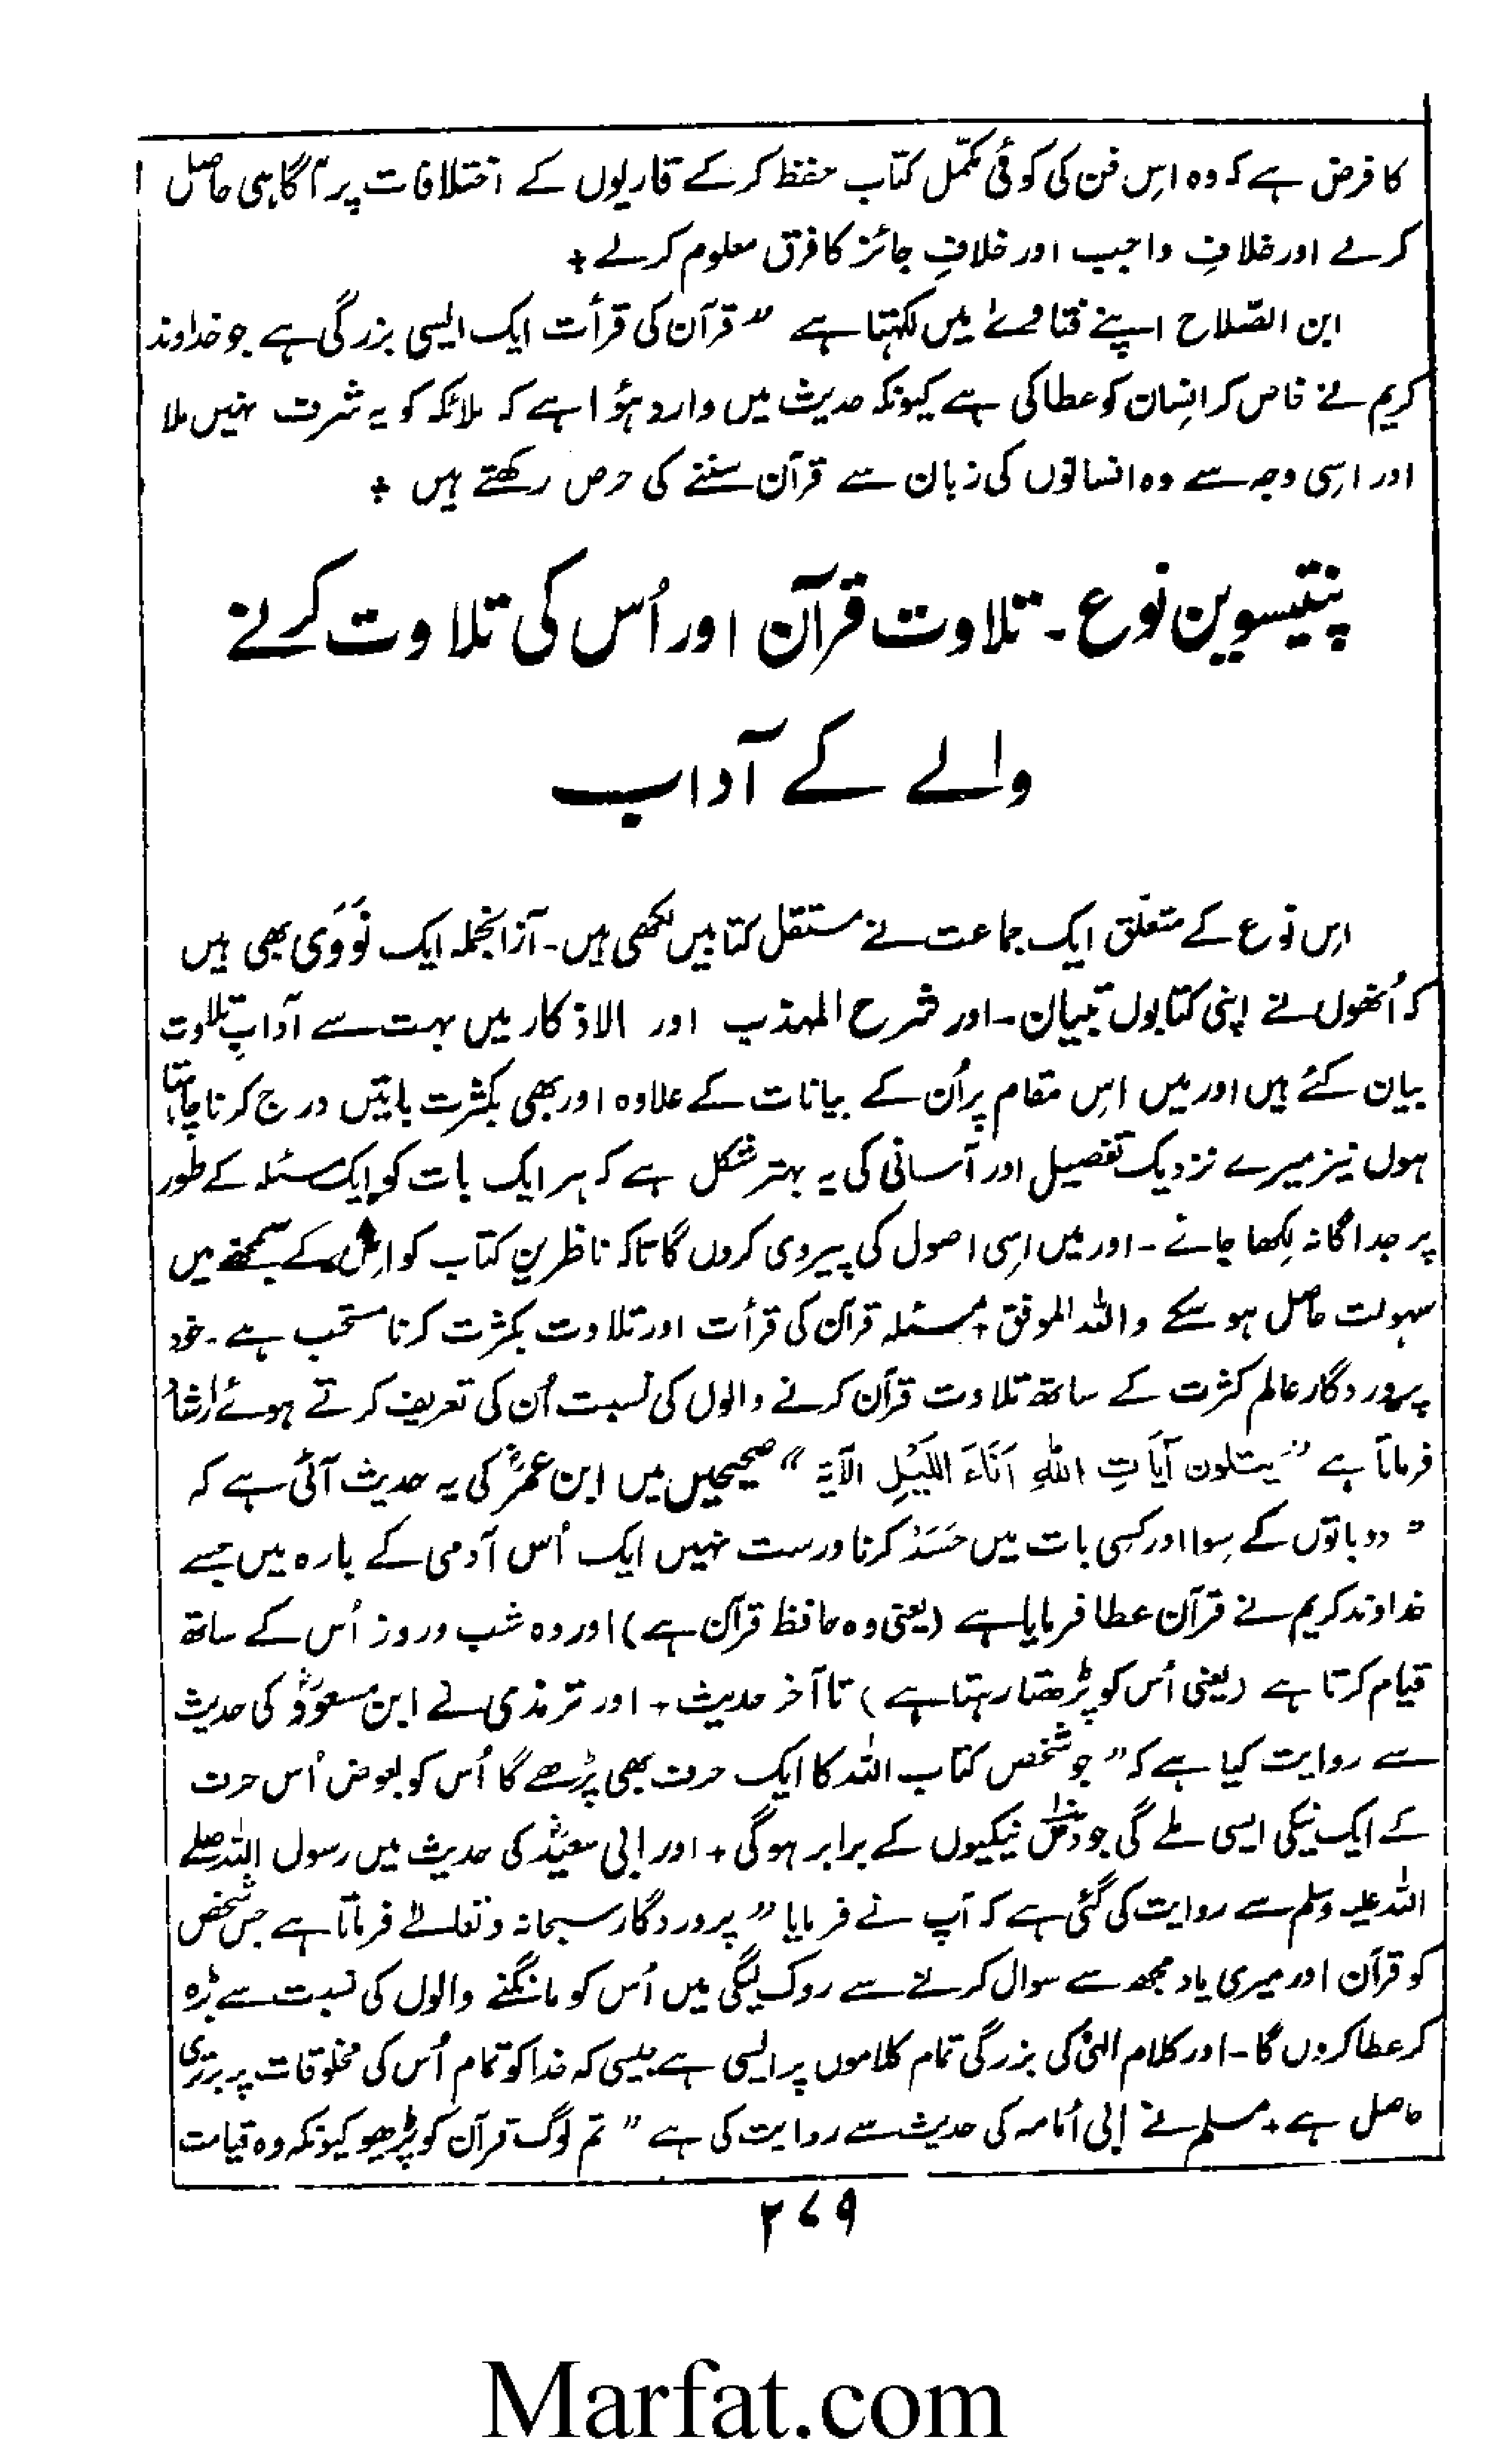 کا فرض ہے کہ وہ اِس فن کی کوئی مکمّل کتاب حفظ کر کے قاریوں کے اختلافات پر آگاہی حاصل
کرے اور خلافِ واجب اور خلافِ جائز کا فرق معلوم کرلے +
ابن الصّلاح اپنے فتاوےٰ میں لکھتا ہے ”قرآن کی قرأت ایک ایسی بزرگی ہے جو خداوند
کریم نے خاص کر انسان کو عطا کی ہے کیونکہ حدیث میں وارد ہؤا ہے کہ ملائکہ کو یہ شرف نہیں ملا
اور اِسی وجہ سے وہ انسانوں کی زبان سے قرآن سننے کی حرص رکھتے ہیں +
پنتیسوین نوع ۔ تلاوت قرآن اور اُس کی تلاوت کرنے
والے کے آداب
اِس نوع کے متعلق ایک جماعت نے مستقل کتابیں لکھی ہیں ۔ ازانجملہ ایک نَوَوی بھی ہیں
کہ اُنھوں نے اپنی کتابوں تبیان ۔ اور شرح المہذب اور الاذکار میں بہت سے آدابِ تلاوت
بیان کئے ہیں اور میں اِس مقام پر اُن کے بیانات کے علاوہ اور بھی بکثرت باتیں درج کرنا چاہتا
ہوں نیز میرے نزدیک تفصیل اور آسانی کی یہ بہتر شکل ہے کہ ہر ایک بات کو ایک مسئلہ کے طور
پر جداگانہ لِکھا جائے ۔ اور میں اِسی اصول کی پیروی کروں گا تاکہ ناظرینِ کتاب کو اِس کے سمجھنے میں
سہولت حاصل ہو سکے واللہ الموفق + مسئلہ قرآن کی قرأت اور تلاوت بکثرت کرنا مستحب ہے ۔ خود
پروردگار عالم کثرت کے ساتھ تلاوت قرآن کرنے والوں کی نسبت اُن کی تعریف کرتے ہوئے ارشاد
فرماتا ہے ”یتلون آیَاتِ اللہِ اٰنَاءَ اللَّیْلِ الآیۃ“ صحیحین میں ابن عمرؓ کی یہ حدیث آئی ہے کہ
”دو باتوں کے سوا اور کسی بات میں حَسَد کرنا درست نہیں ایک اُس آدمی کے بارہ میں جسے
خداوند کریم نے قرآن عطا فرمایا ہے (یعنی وہ حافظ قرآن ہے) اور وہ شب و روز اُس کے ساتھ
قیام کرتا ہے (یعنی اُس کو پڑھتا رہتا ہے) تا آخر حدیث + اور ترمذی نے ابن مسعودؓ کی حدیث
سے روایت کیا ہے کہ ”جو شخص کتاب اللہ کا ایک حرف بھی پڑھے گا اُس کو بعوض اُس حرف
کے ایک نیکی ایسی ملے گی جو دس نیکیوں کے برابر ہوگی + اور ابی سعیدؓ کی حدیث میں رسول اللہ صلے
اللہ علیہ وسلم سے روایت کی گئی ہے کہ آپ نے فرمایا ”پروردگار سبحانہ وتعالےٰ فرماتا ہے جس شخص
کو قرآن اور میری یاد مجھ سے سوال کرنے سے روک لیگی میں اُس کو مانگنے والوں کی نسبت سے بڑہ
کر عطا کروں گا ۔ اور کلام الٰہی کی بزرگی تمام کلاموں پر ایسی ہے جیسی کہ خدا کو تمام اُس کی مخلوقات پر برتری
حاصل ہے + مسلم نے ابی اُمامہ کی حدیث سے روایت کی ہے ”تم لوگ قرآن کو پڑھو کیونکہ وہ قیامت
۲۷۹
Marfat.com